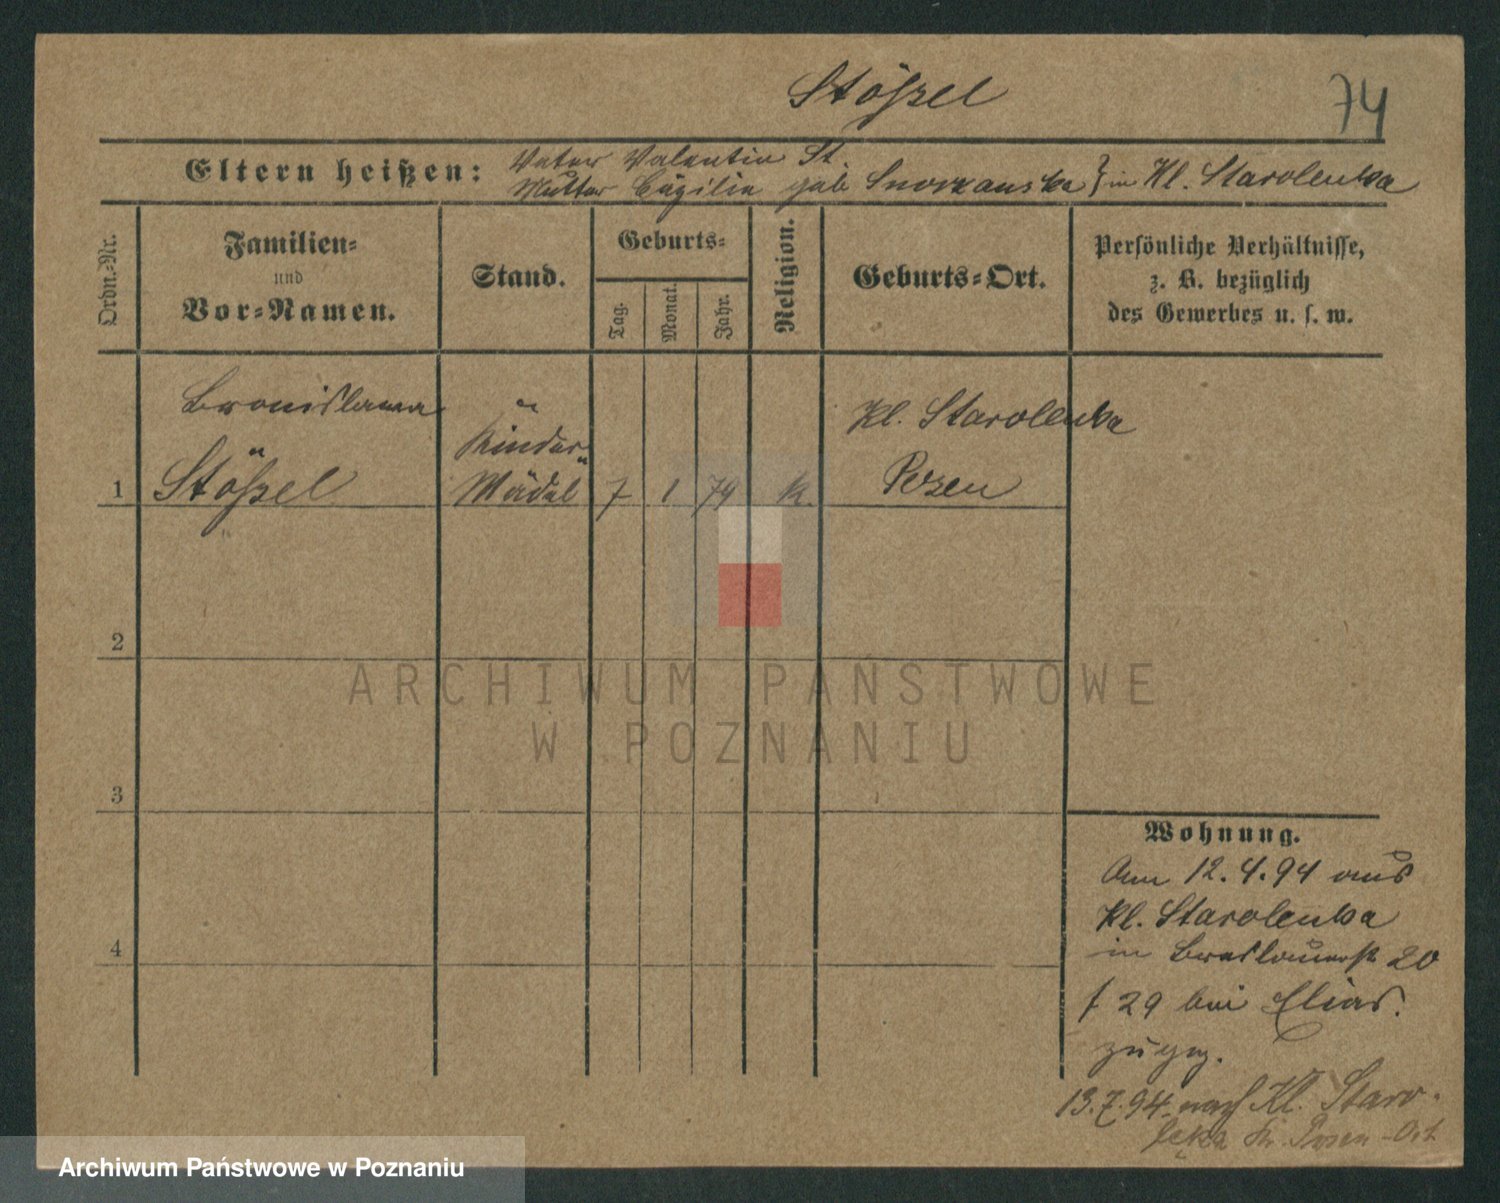 Stößel
74
Eltern heißen: Vater Valentin St.
Mutter Cäzilia geb Snorzanska } in Kl. Starolenka
Ordn.-Nr.
Familien-
und
Vor-Namen.
Stand.
Geburts-
Tag.
Monat.
Jahr.
Religion.
Geburts-Ort.
Persönliche Verhältnisse,
z. B. bezüglich
des Gewerbes u. s. w.
Bronislawa
Kl. Starolenka
Kinder-
1 Stößel Mädel 7 1 74 K. Posen
2
3
4
Wohnung.
Am 12.4.94 aus
Kl. Starolenka
in Breslauerst 20
f 29 bei Elias.
zugez.
13.7.94. nach Kl. Staro-
lęka Kr. Posen-Ost
ARCHIWUM PAŃSTWOWE
W POZNANIU
Archiwum Państwowe w Poznaniu